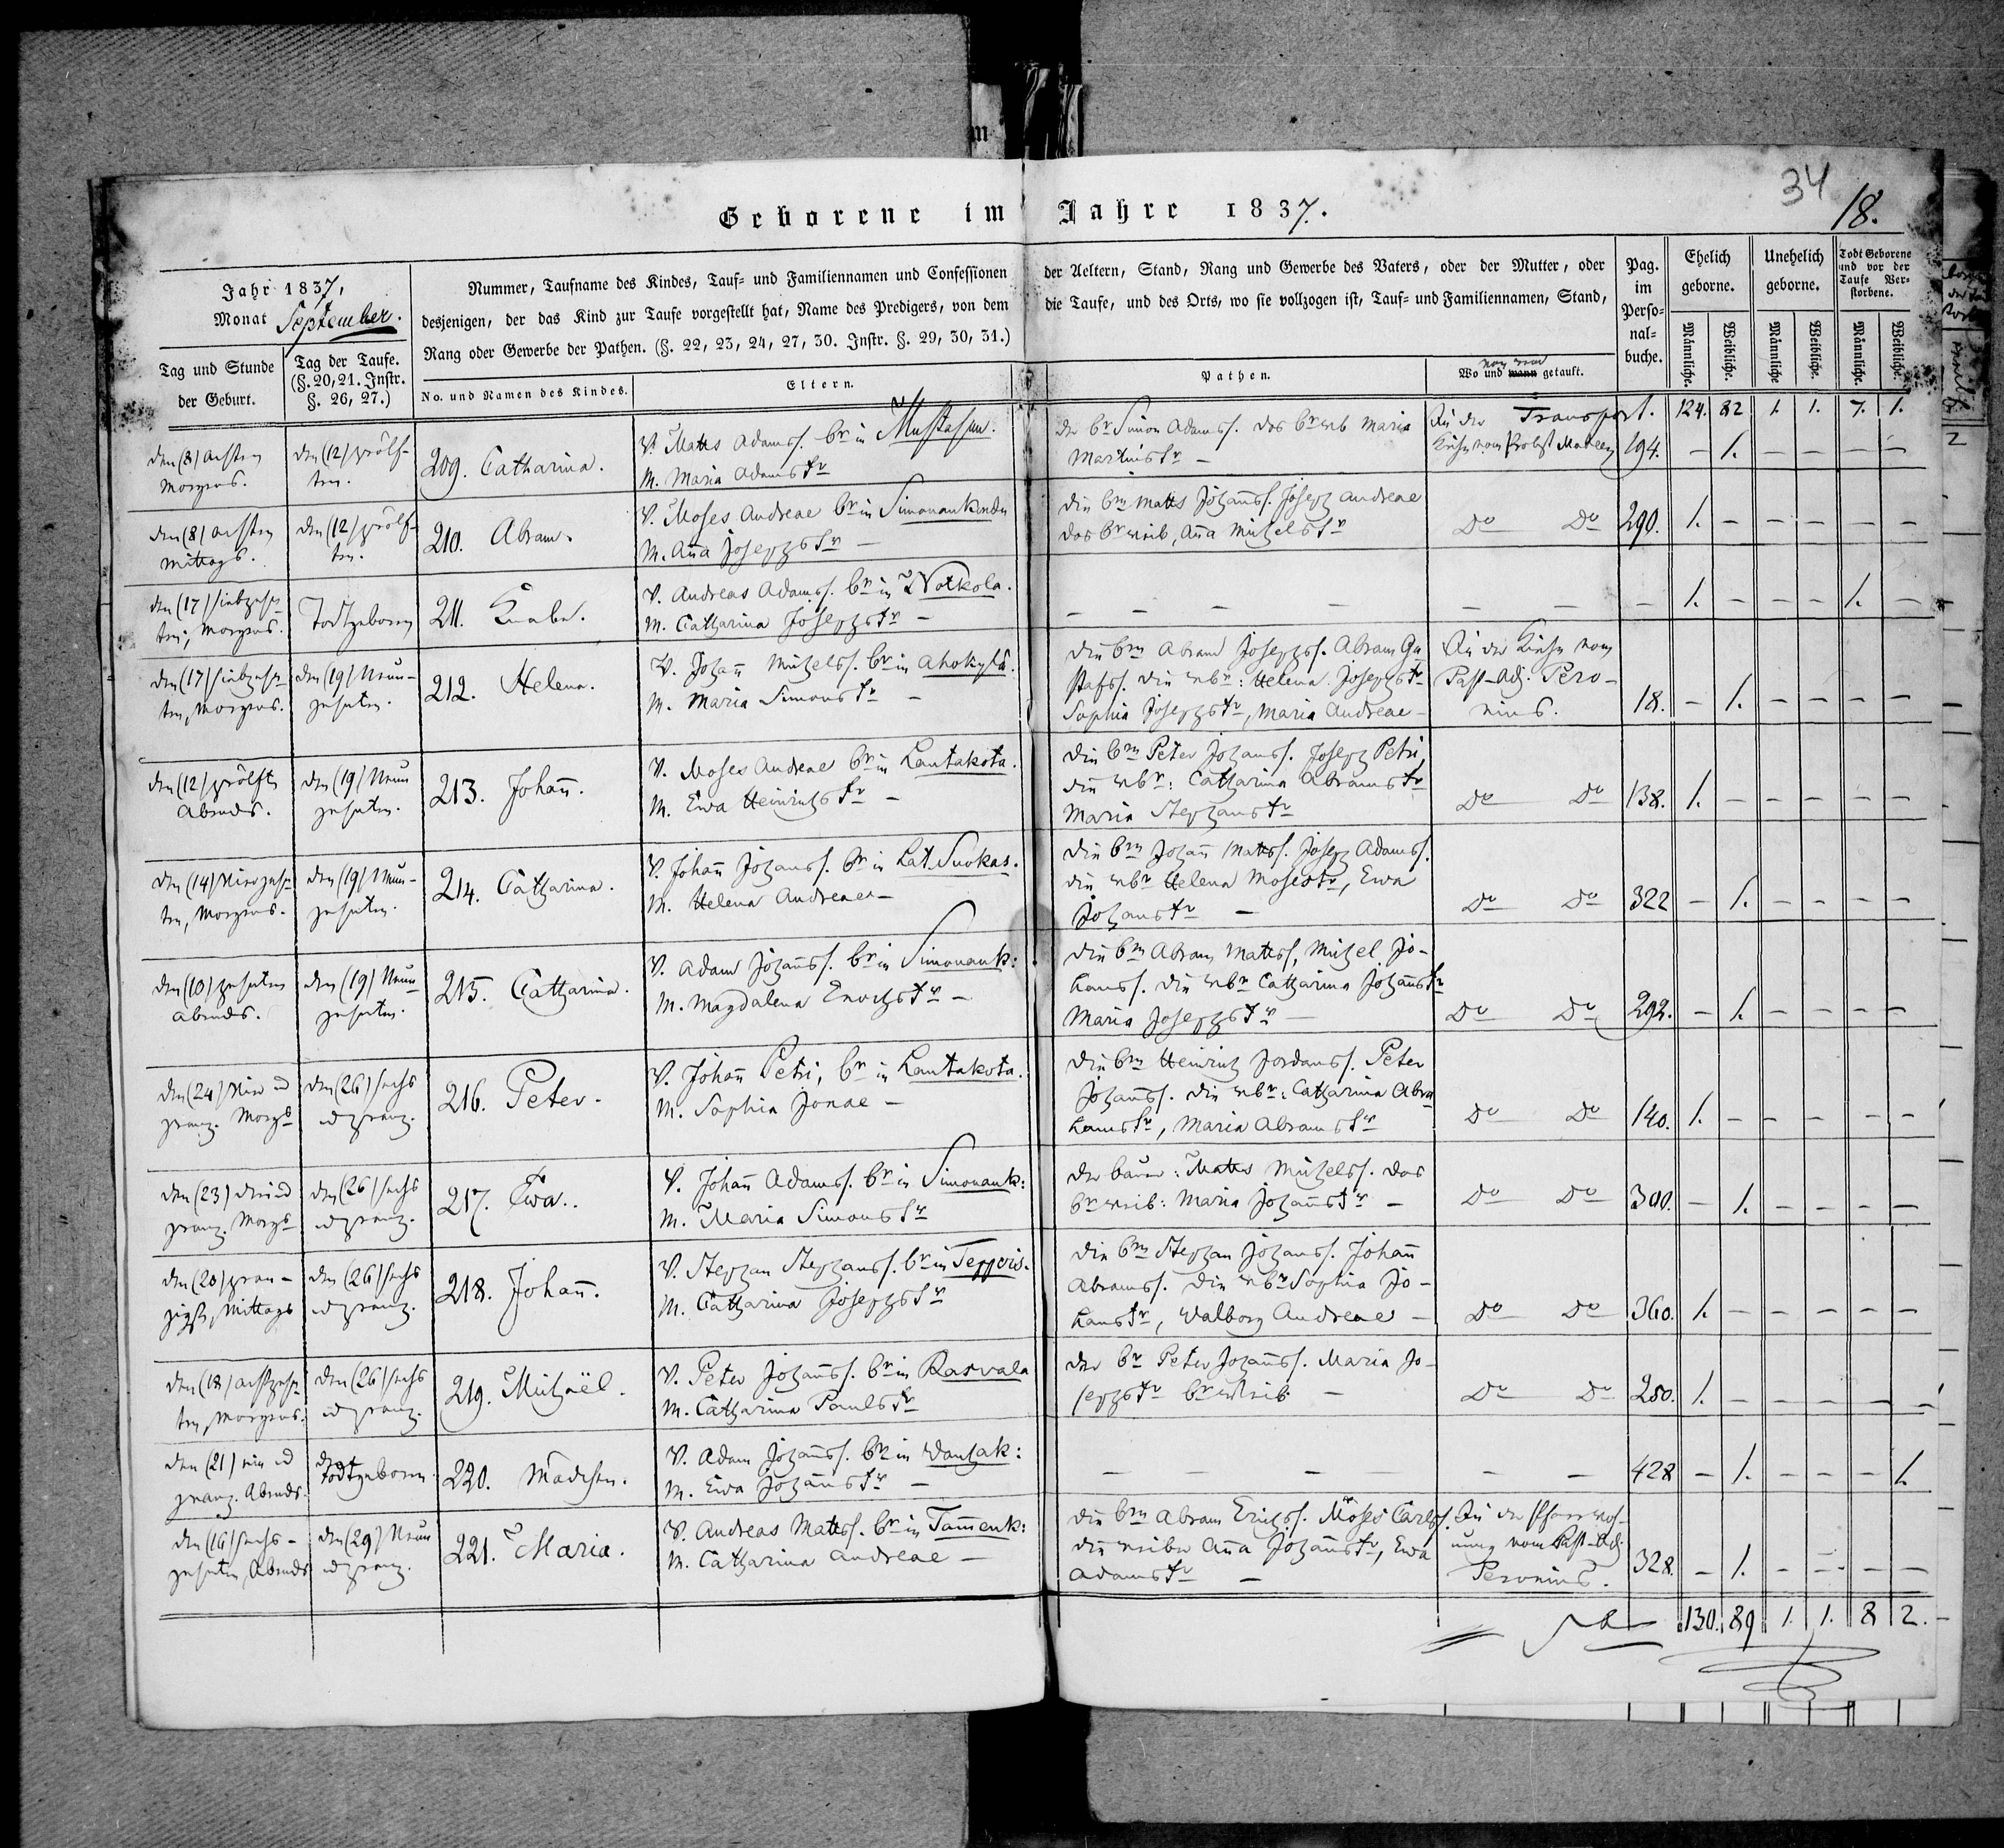 34
18.
Geborene im Jahre 1837.
Jahr 1837,
Monat September.
Tag und Stunde der Geburt.
Tag der Taufe. (§. 20, 21. Instr. §. 26, 27.)
Nummer, Taufname des Kindes, Tauf- und Familiennamen und Confessionen der Aeltern, Stand, Rang und Gewerbe des Vaters, oder der Mutter, oder
desjenigen, der das Kind zur Taufe vorgestellt hat, Name des Predigers, von dem die Taufe, und des Orts, wo sie vollzogen ist, Tauf- und Familiennamen, Stand,
Rang oder Gewerbe der Pathen. (§. 22, 23, 24, 27, 30. Instr. §. 29, 30, 31.)
No. und Namen des Kindes.
Eltern.
Pathen.
Wo und wann von wem getauft.
Pag. im Perso-nal-buche.
Ehelich geborne.
Unehelich geborne.
Todt Geborene und vor der Taufe Ver-storbene.
Männliche. Weibliche. Männliche Weibliche. Männliche. Weibliche.
Transport. 124. 82 1. 1. 7. 1.
den (8) achten
Morgens.
den (12) zwölf-
ten.
209. Catharina.
V. Matts Adamss. br in Mustasen.
M. Maria Adamstr
der br Simon Adamss. das br wb Maria
Martinstr –
In der
Kirche vom Probst
194. – 1. – – – –
den (8) achten
Mittags.
den (12) zwölf-
ten.
210. Abram.
V. Moses Andreae br in Simonankondu
M. Aña Josephstr –
die brn Matts Johañss. Joseph Andreae
das br weib, Aña Michelstr
Do Do 290. 1. – – – – –
den (17) siebzehn-
ten, Morgens.
Todtgeboren
211. Knabe.
V. Andreas Adamss. br in Notkola.
M. Catharina Josephstr –
– – – – – – – 1. – – – 1. –
den (17) siebzehn-
ten, Morgens.
den (19) Neun-
zehnten.
212. Helena.
V. Johañ Michelss. br in Ahokylä.
M. Maria Simonstr –
die brn Abram Josephss. Abram Gu
stafss. die wbr: Helena Josephstr
Sophia Josephstr, Maria Andreae –
In der Kirche vom
Past-Adj. Pero-
nius.
18. – 1. – – – –
den (12) zwölften
Abends.
den (19) Neun
zehnten.
213. Johañ.
V. Moses Andreae br in Lautakota.
M. Ewa Heinrichstr –
die brn Peter Johanss. Joseph Petri,
die wbr: Catharina Abramstr
Maria Stephanstr
Do Do 138. 1. – – – – –
den (14) Vierzehn-
ten, Morgens.
den (19) Neun-
zehnten.
214. Catharina.
V. Johañ Johanss. br in Lat. Suokas.
M. Helena Andreae –
die brn Johañ Mattss. Joseph Adamss.
die wbr Helena Mosestr, Ewa
Johanstr –
Do Do 322 – 1. – – – –
den (10) zehnten
Abends.
den (19) Neun
zehnten.
215. Catharina.
V. Adam Johañss. br in Simonank:
M. Magdalena Enochstr –
die brn Abram Mattss, Michel Jo-
hanss. die wbr Catharina Johañstr
Maria Josephstr –
Do Do 292. – 1. – – – –
den (24) Vier ud
zwanz. Morgs
den (26) sechs
ud zwanz.
216. Peter.
V. Johañ Petri, br in Lautakota.
M. Sophia Jonae –
die brn Heinrich Jordanss. Peter
Johanss. die wbr: Catharina Abra
hamstr, Maria Abramstr
Do Do 140. 1. – – – – –
den (23) drei ud
zwanz. Morgs
den (26) sechs
ud zwanz.
217. Ewa.
V. Johañ Adamss. br in Simonank:
M. Maria Simonstr
der bauer: Matts Michelss. das
br weib: Maria Johañstr –
Do Do 300. – 1. – – – –
den (20) zwan-
zigst, Mittags
den (26) sechs
ud zwanz.
218. Johañ.
V. Stephan Stephanss. br in Teppois.
M. Catharina Josephstr
die brn Stephan Johanss. Johañ
Abramss. die wbr Sophia Jo-
hanstr, Walborg Andreae –
Do Do 360. 1. – – – – –
den (18) achtzehn-
ten, Morgens.
den (26) sechs
ud zwanz.
219. Michaël.
V. Peter Johañss. br in Rasvala
M. Catharina Paulstr
der br Peter Johañss. Maria Jo-
sephstr br weib –
Do Do 280. 1. – – – – –
den (21) ein ud
zwanz. Abends.
Todtgeboren.
220. Mädchen.
V. Adam Johañss. br in Wanhak:
M. Ewa Johañstr –
– – – – – – 428 – 1. – – – 1.
den (16) sechs-
zehnten, Abends
den (29) Neun
ud zwanz.
221. Maria.
V. Andreas Mattss. br in Tam̃enk:
M. Catharina Andreae –
die brn Abram Ericss. Moses Carlss.
die weiber Aña Johañstr, Ewa
Adamstr –
In der Pfarrwoh-
nung vom Past-Adj.
Peronius.
328. – 1. – – – –
130. 89 1. 1. 8 2.